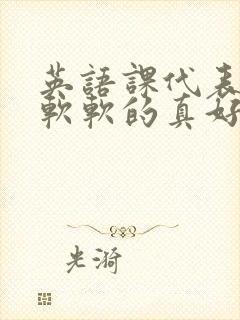 英語課代表
軟軟的真好
光漪